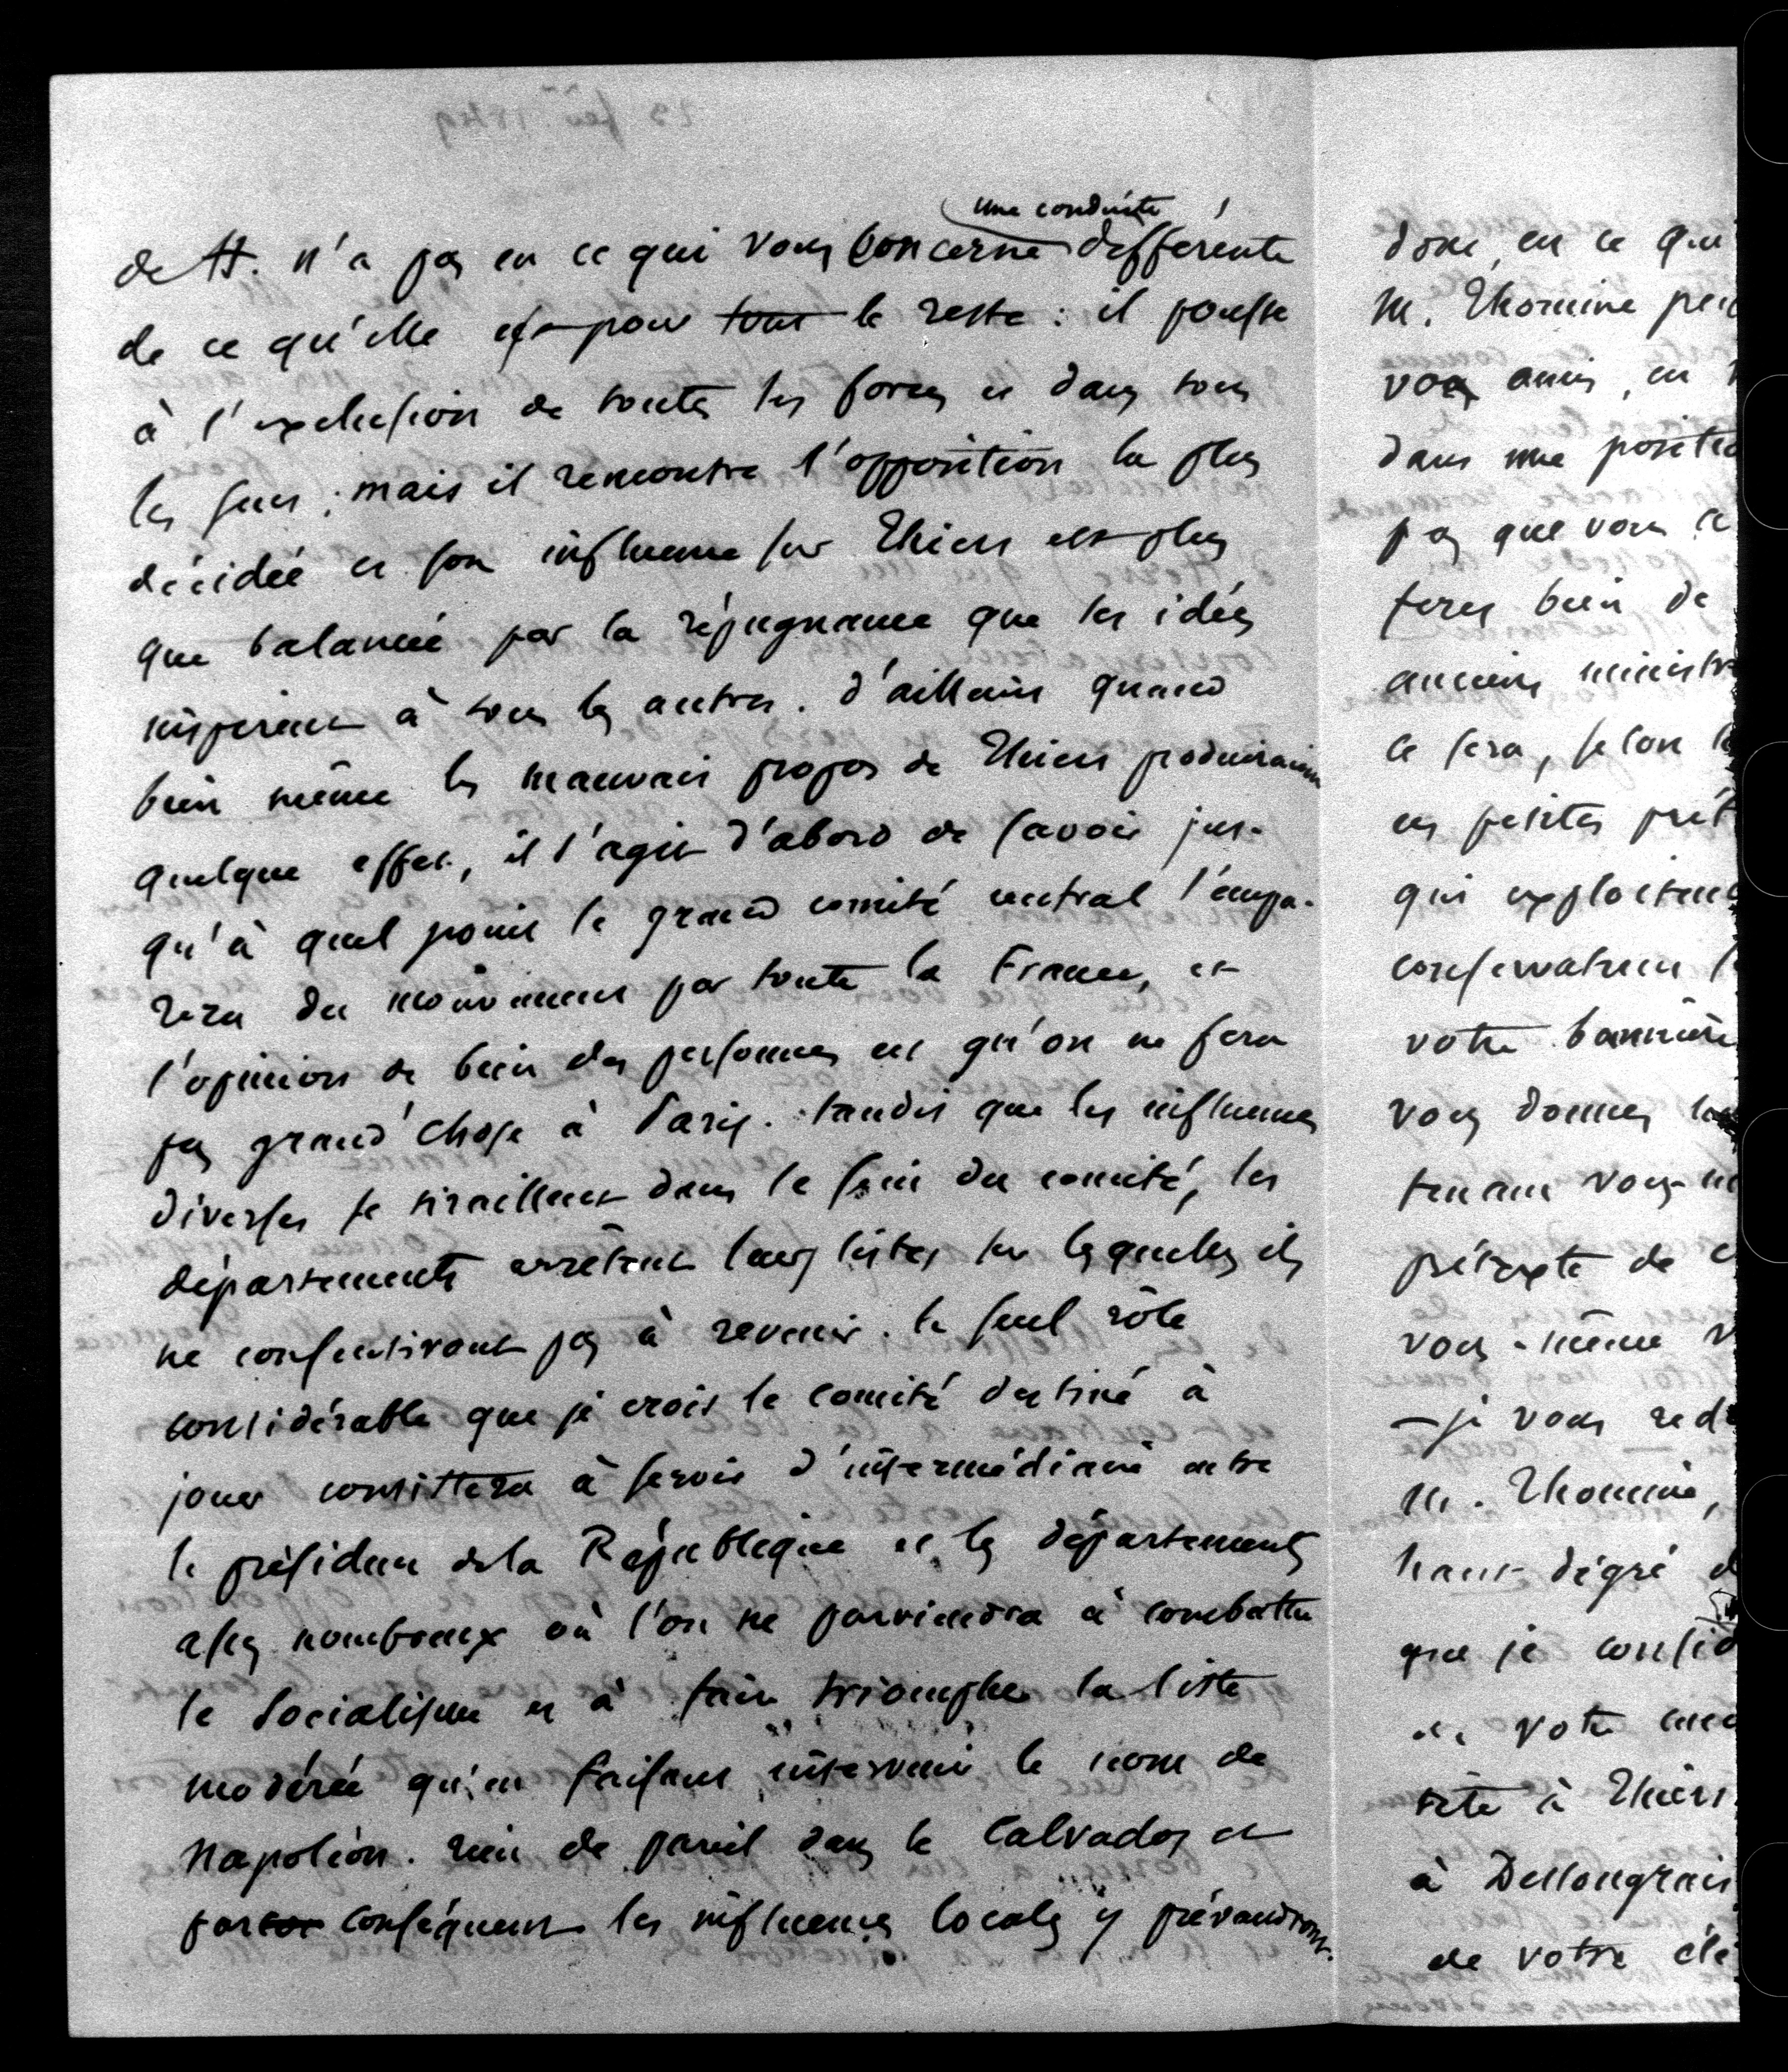 une conduite
de H. n'a pas en ce qui vous concerne differente
de ce qu'elle est pour tout le reste : il pousse
à l'exclusion de toutes les forces et dans tous
les sens ; mais il rencontre l'opposition la plus
décidée et son influence sur Thiers est plus
que balancée par la répugnance que les idées
inspirent à tous les autres. d'ailleurs quand
bien même les mauvais propos de Thiers produiraient
quelque effet, il s'agit d'abord de savoir jus-
qu'à quel point le grand comité central s'empa-
rera du mouvement par toute la France, et
l'opinion de bien des personnes est qu'on ne fera
pas grand'chose à Paris. tandis que les influences
diverses se tiraillent dans le sein du comité, les
départements arrêtent leurs listes sur lesquelles ils
ne consentiront pas à revenir. le seul rôle
considérable que je crois le comité destiné à
jouer consistera à servir d'intermédiaire entre
le président de la République et les départements
assez nombreux où l'on ne parviendra à combattre
le Socialisme et à faire triompher la liste
modérée qu'en faisant intervenir le nom de
Napoléon. rien de pareil dans le Calvados et
par conséquent les influences locales y prévaudront.
donc en ce qui
M. Thomine
vos amis, en
dans une
pas que vous
ferez bien de
anciens
ce sera, selon
en petites
qui
votre bannière
vous donnez
tenant vous
prétexte de
vous-même
— je vous
M. Thomine,
haut dégré
que je
et votre
tête à Thiers
à Deslongrais
de votre